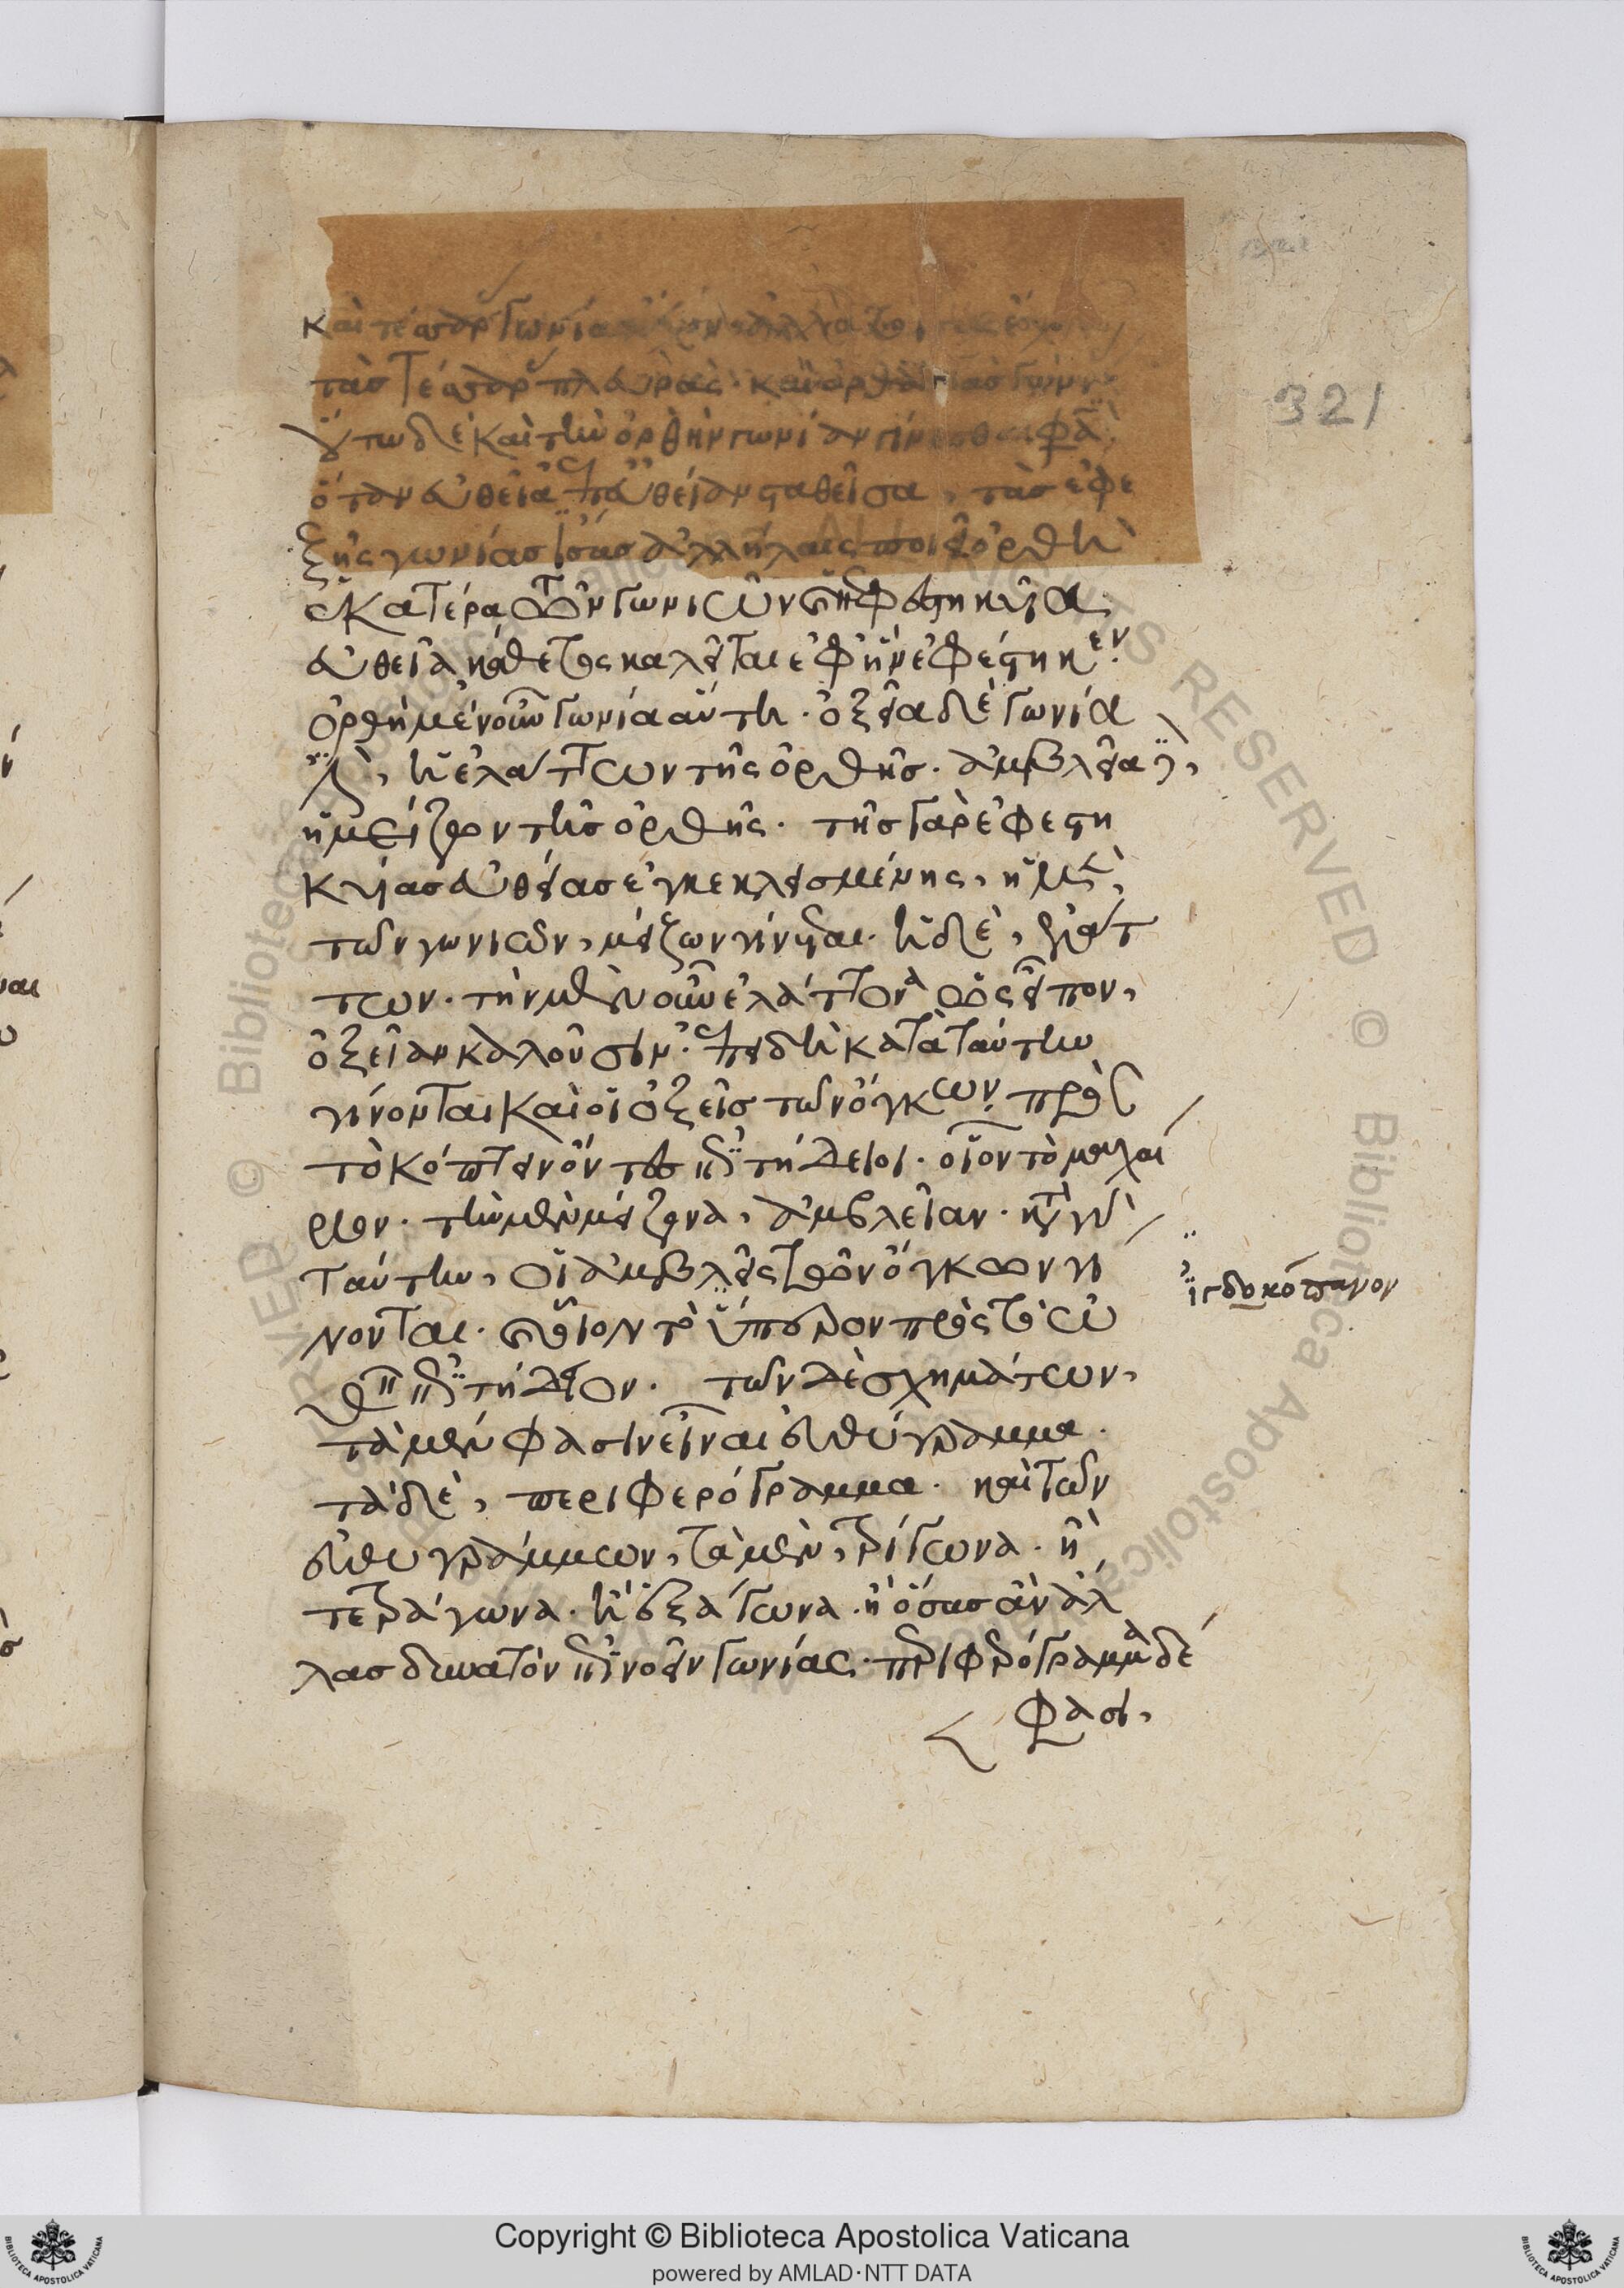 καὶ τέσσαρας γωνίας
τὰς τέσσαρας πλευρὰς. καὶ ὀρθὰς τὰς γωνίας
οὕτω δὲ καὶ τὴν ὀρθὴν γωνίαν γίνεσθαι φα
ὅταν εὐθεῖα ἐπ' εὐθεῖαν σταθεῖσα, τὰς ἐφε
ξῆς γωνίας ἴσας ἀλλήλαις ποιεῖ ὀρθὴ
ἑκατέρα τῶν γωνιῶν
εὐθεῖα κάθετος καλεῖται ἐφ' ἣν ἐφέστηκεν.
ὀρθὴ μὲν οὖν γωνία αὕτη. ὀξεῖα δὲ γωνία
ἡ ἐλάττων τῆς ὀρθῆς. ἀμβλεῖα
ἡ μείζων τῆς ὀρθῆς. τῆς γὰρ ἐφεστη
κυίας εὐθείας ἐγκεκλεισμένης, ἡ μὲν
τῶν γωνιῶν, μείζων γίνεται. ἡ δὲ, ἐλάτ
των. τὴν μὲν οὖν ἐλάττονα ὡς εἶπον,
ὀξεῖαν καλοῦσιν. ἐπειδὴ κατὰ ταύτην
γίνονται καὶ οἱ ὀξεῖς τῶν ὄγκων. πρὸς
τὸ κόπτειν ὄντες ἐπιτήδειοι. οἷον τὸ μαχαί
ριον. τὴν μὲν μείζονα, ἀμβλεῖαν.
ταύτην, οἱ ἀμβλεῖς τῶν ὄγκων γί
νονται. οἷον τὸ ὕπερον πρὸς τὸ
ἐπιτήδειον. τῶν δὲ σχημάτων,
τὰ μέν φασιν εἶναι εὐθύγραμμα.
τὰ δὲ, περιφερόγραμμα. καὶ τῶν
εὐθυγράμμων, τὰ μὲν, τρίγωνα. ἢ
τετράγωνα. ἢ ἑξάγωνα. ἢ ὅσας ἂν ἀλ
λας δυνατὸν ἐπινοεῖν γωνίας. περιφερόγραμμα δέ
φασι,
321
κόπανον
Copyright © Biblioteca Apostolica Vaticana
powered by AMLAD·NTT DATA